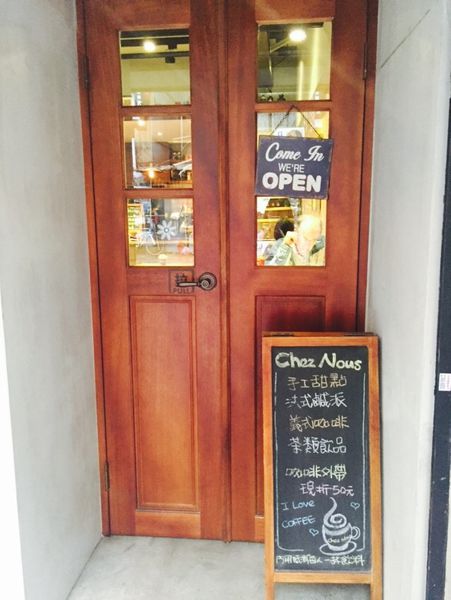 Come In
WE'RE
OPEN
PULL
Chez Nous
手工甜點
法式鹹派
義式咖啡
茶類飲品
咖啡外帶
現折50元
I Love
COFFEE
chez nous